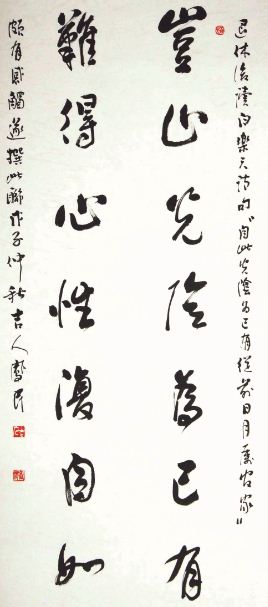 退休後讀白樂天詩句"自此光陰為己有從前日月屬官家"
豈止光陰為己有
難得心性復自如
頗有感觸遂撰此聯戊子仲秋吉人